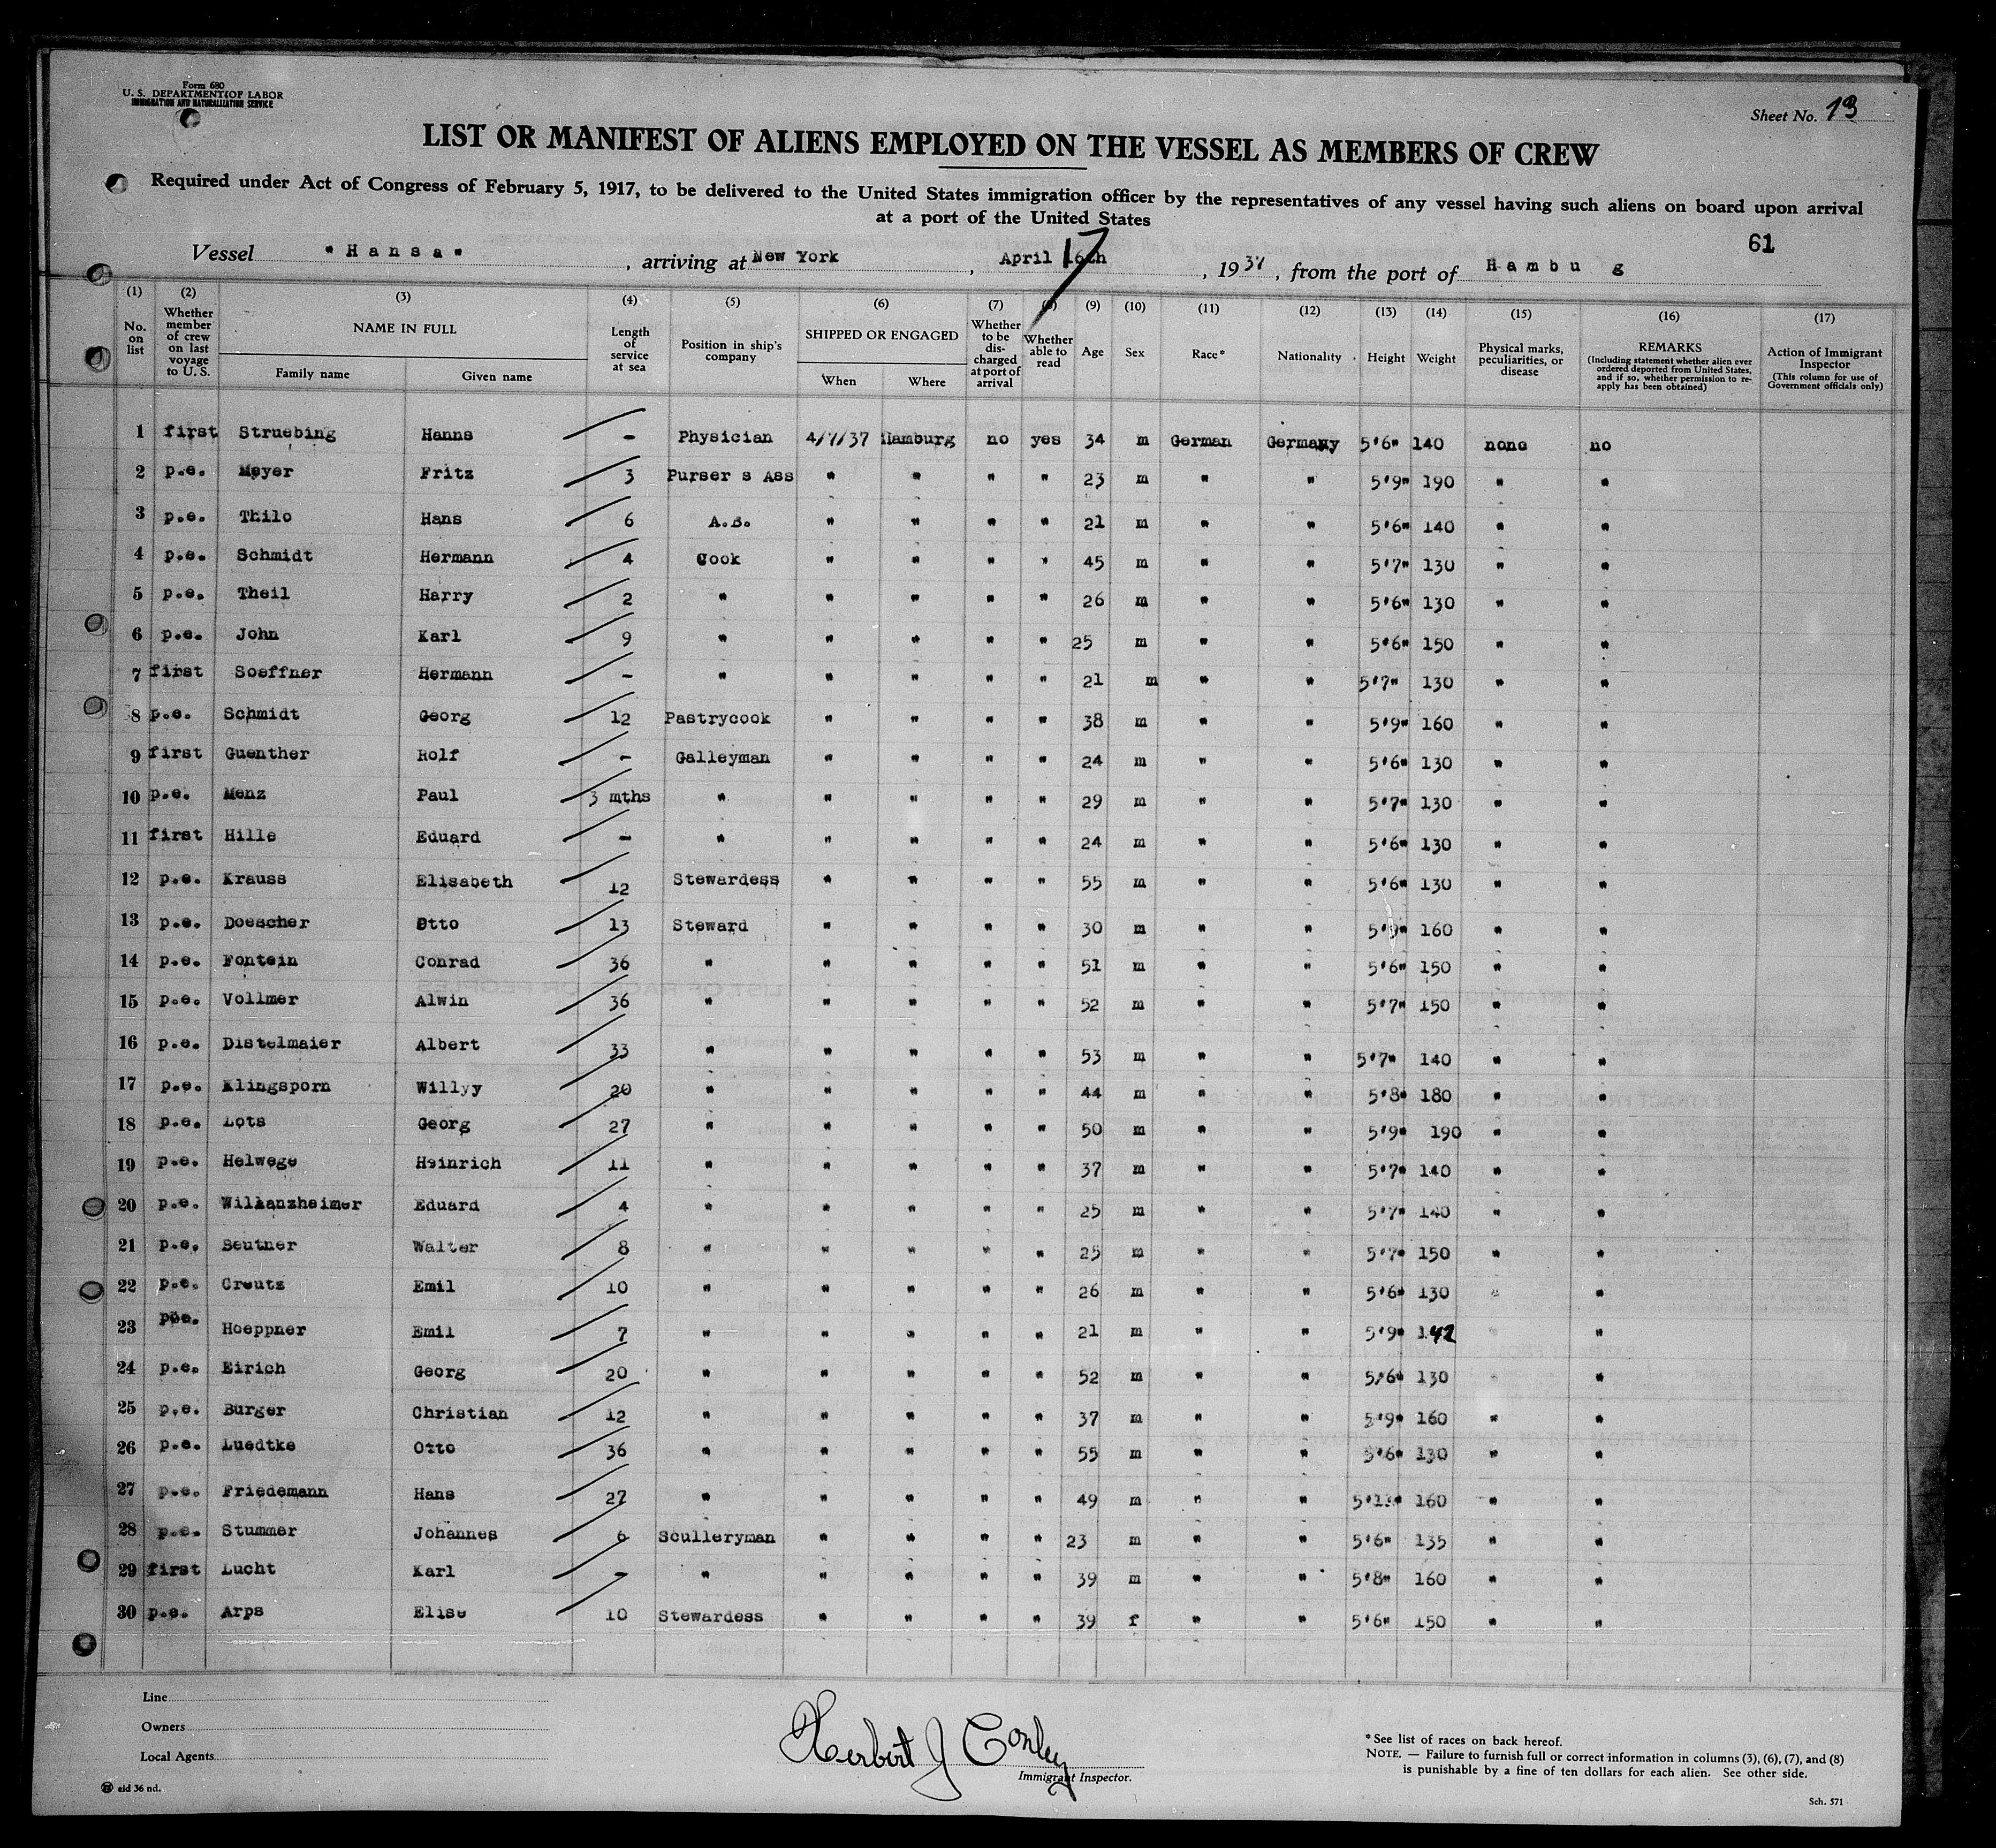 Form 680
U. S. DEPARTMENT OF LABOR
IMMIGRATION AND NATURALIZATION SERVICE
Sheet No. 13
LIST OR MANIFEST OF ALIENS EMPLOYED ON THE VESSEL AS MEMBERS OF CREW
Required under Act of Congress of February 5, 1917, to be delivered to the United States immigration officer by the representatives of any vessel having such aliens on board upon arrival
at a port of the United States
61
Vessel "Hansa", arriving at New York, April 16th 17, 1937, from the port of Hambu g
(1) (2) (3) (4) (5) (6) (7) (8) (9) (10) (11) (12) (13) (14) (15) (16) (17)
No. on list
Whether member of crew on last voyage to U. S.
NAME IN FULL
Family name Given name
Length of service at sea
Position in ship's company
SHIPPED OR ENGAGED
When Where
Whether to be discharged at port of arrival
Whether able to read
Age
Sex
Race*
Nationality
Height
Weight
Physical marks, peculiarities, or disease
REMARKS
(Including statement whether alien ever ordered deported from United States, and if so, whether permission to reapply has been obtained)
Action of Immigrant Inspector
(This column for use of Government officials only)
1 first Struebing Hanns - Physician 4/7/37 Hamburg no yes 34 m German Germany 5'6" 140 none no
2 p.e. Meyer Fritz 3 Purser s Ass " " " " 23 m " " 5'9" 190 " "
3 p.e. Thilo Hans 6 A.B. " " " " 21 m " " 5'6" 140 " "
4 p.e. Schmidt Hermann 4 Cook " " " " 45 m " " 5'7" 130 " "
5 p.e. Theil Harry 2 " " " " " 26 m " " 5'6" 130 " "
6 p.e. John Karl 9 " " " " " 25 m " " 5'6" 150 " "
7 first Soeffner Hermann - " " " " " 21 m " " 5'7" 130 " "
8 p.e. Schmidt Georg 12 Pastrycook " " " " 38 m " " 5'9" 160 " "
9 first Guenther Rolf - Galleyman " " " " 24 m " " 5'6" 130 " "
10 p.e. Menz Paul 3 mths " " " " " 29 m " " 5'7" 130 " "
11 first Hille Eduard - " " " " " 24 m " " 5'6" 130 " "
12 p.e. Krauss Elisabeth 12 Stewardess " " " " 55 m " " 5'6" 130 " "
13 p.e. Doescher Otto 13 Steward " " " " 30 m " " 5'9" 160 " "
14 p.e. Fontein Conrad 36 " " " " " 51 m " " 5'6" 150 " "
15 p.e. Vollmer Alwin 36 " " " " " 52 m " " 5'7" 150 " "
16 p.e. Distelmaier Albert 33 " " " " " 53 m " " 5'7" 140 " "
17 p.e. Klingsporn Willyy 20 " " " " " 44 m " " 5'8" 180 " "
18 p.e. Lots Georg 27 " " " " " 50 m " " 5'9" 190 " "
19 p.e. Helwege Heinrich 11 " " " " " 37 m " " 5'7" 140 " "
20 p.e. Willanzheimer Eduard 4 " " " " " 25 m " " 5'7" 140 " "
21 p.e. Beutner Walter 8 " " " " " 25 m " " 5'7" 150 " "
22 p.e. Creutz Emil 10 " " " " " 26 m " " 5'6" 130 " "
23 p.e. Hoeppner Emil 7 " " " " " 21 m " " 5'9" 142 " "
24 p.e. Eirich Georg 20 " " " " " 52 m " " 5'6" 130 " "
25 p.e. Burger Christian 12 " " " " " 37 m " " 5'9" 160 " "
26 p.e. Luedtke Otto 36 " " " " " 55 m " " 5'6" 130 " "
27 p.e. Friedemann Hans 27 " " " " " 49 m " " 160 " "
28 p.e. Stummer Johannes 6 Sculleryman " " " " 23 m " " 5'6" 135 " "
29 first Lucht Karl - " " " " " 39 m " " 5'8" 160 " "
30 p.e. Arps Elise 10 Stewardess " " " " 39 f " " 5'6" 150 " "
Line
Owners
Local Agents
eid 36 nd.
Herbert J Conley
Immigrant Inspector.
*See list of races on back hereof.
NOTE. — Failure to furnish full or correct information in columns (3), (6), (7), and (8)
is punishable by a fine of ten dollars for each alien. See other side.
Sch. 571